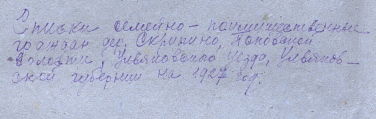 Списки семейно-поимущественные
граждан дер. Скрипино, Поповской
волости, Ульяновского уезда, Ульянов-
ской губернии на 1927 год.